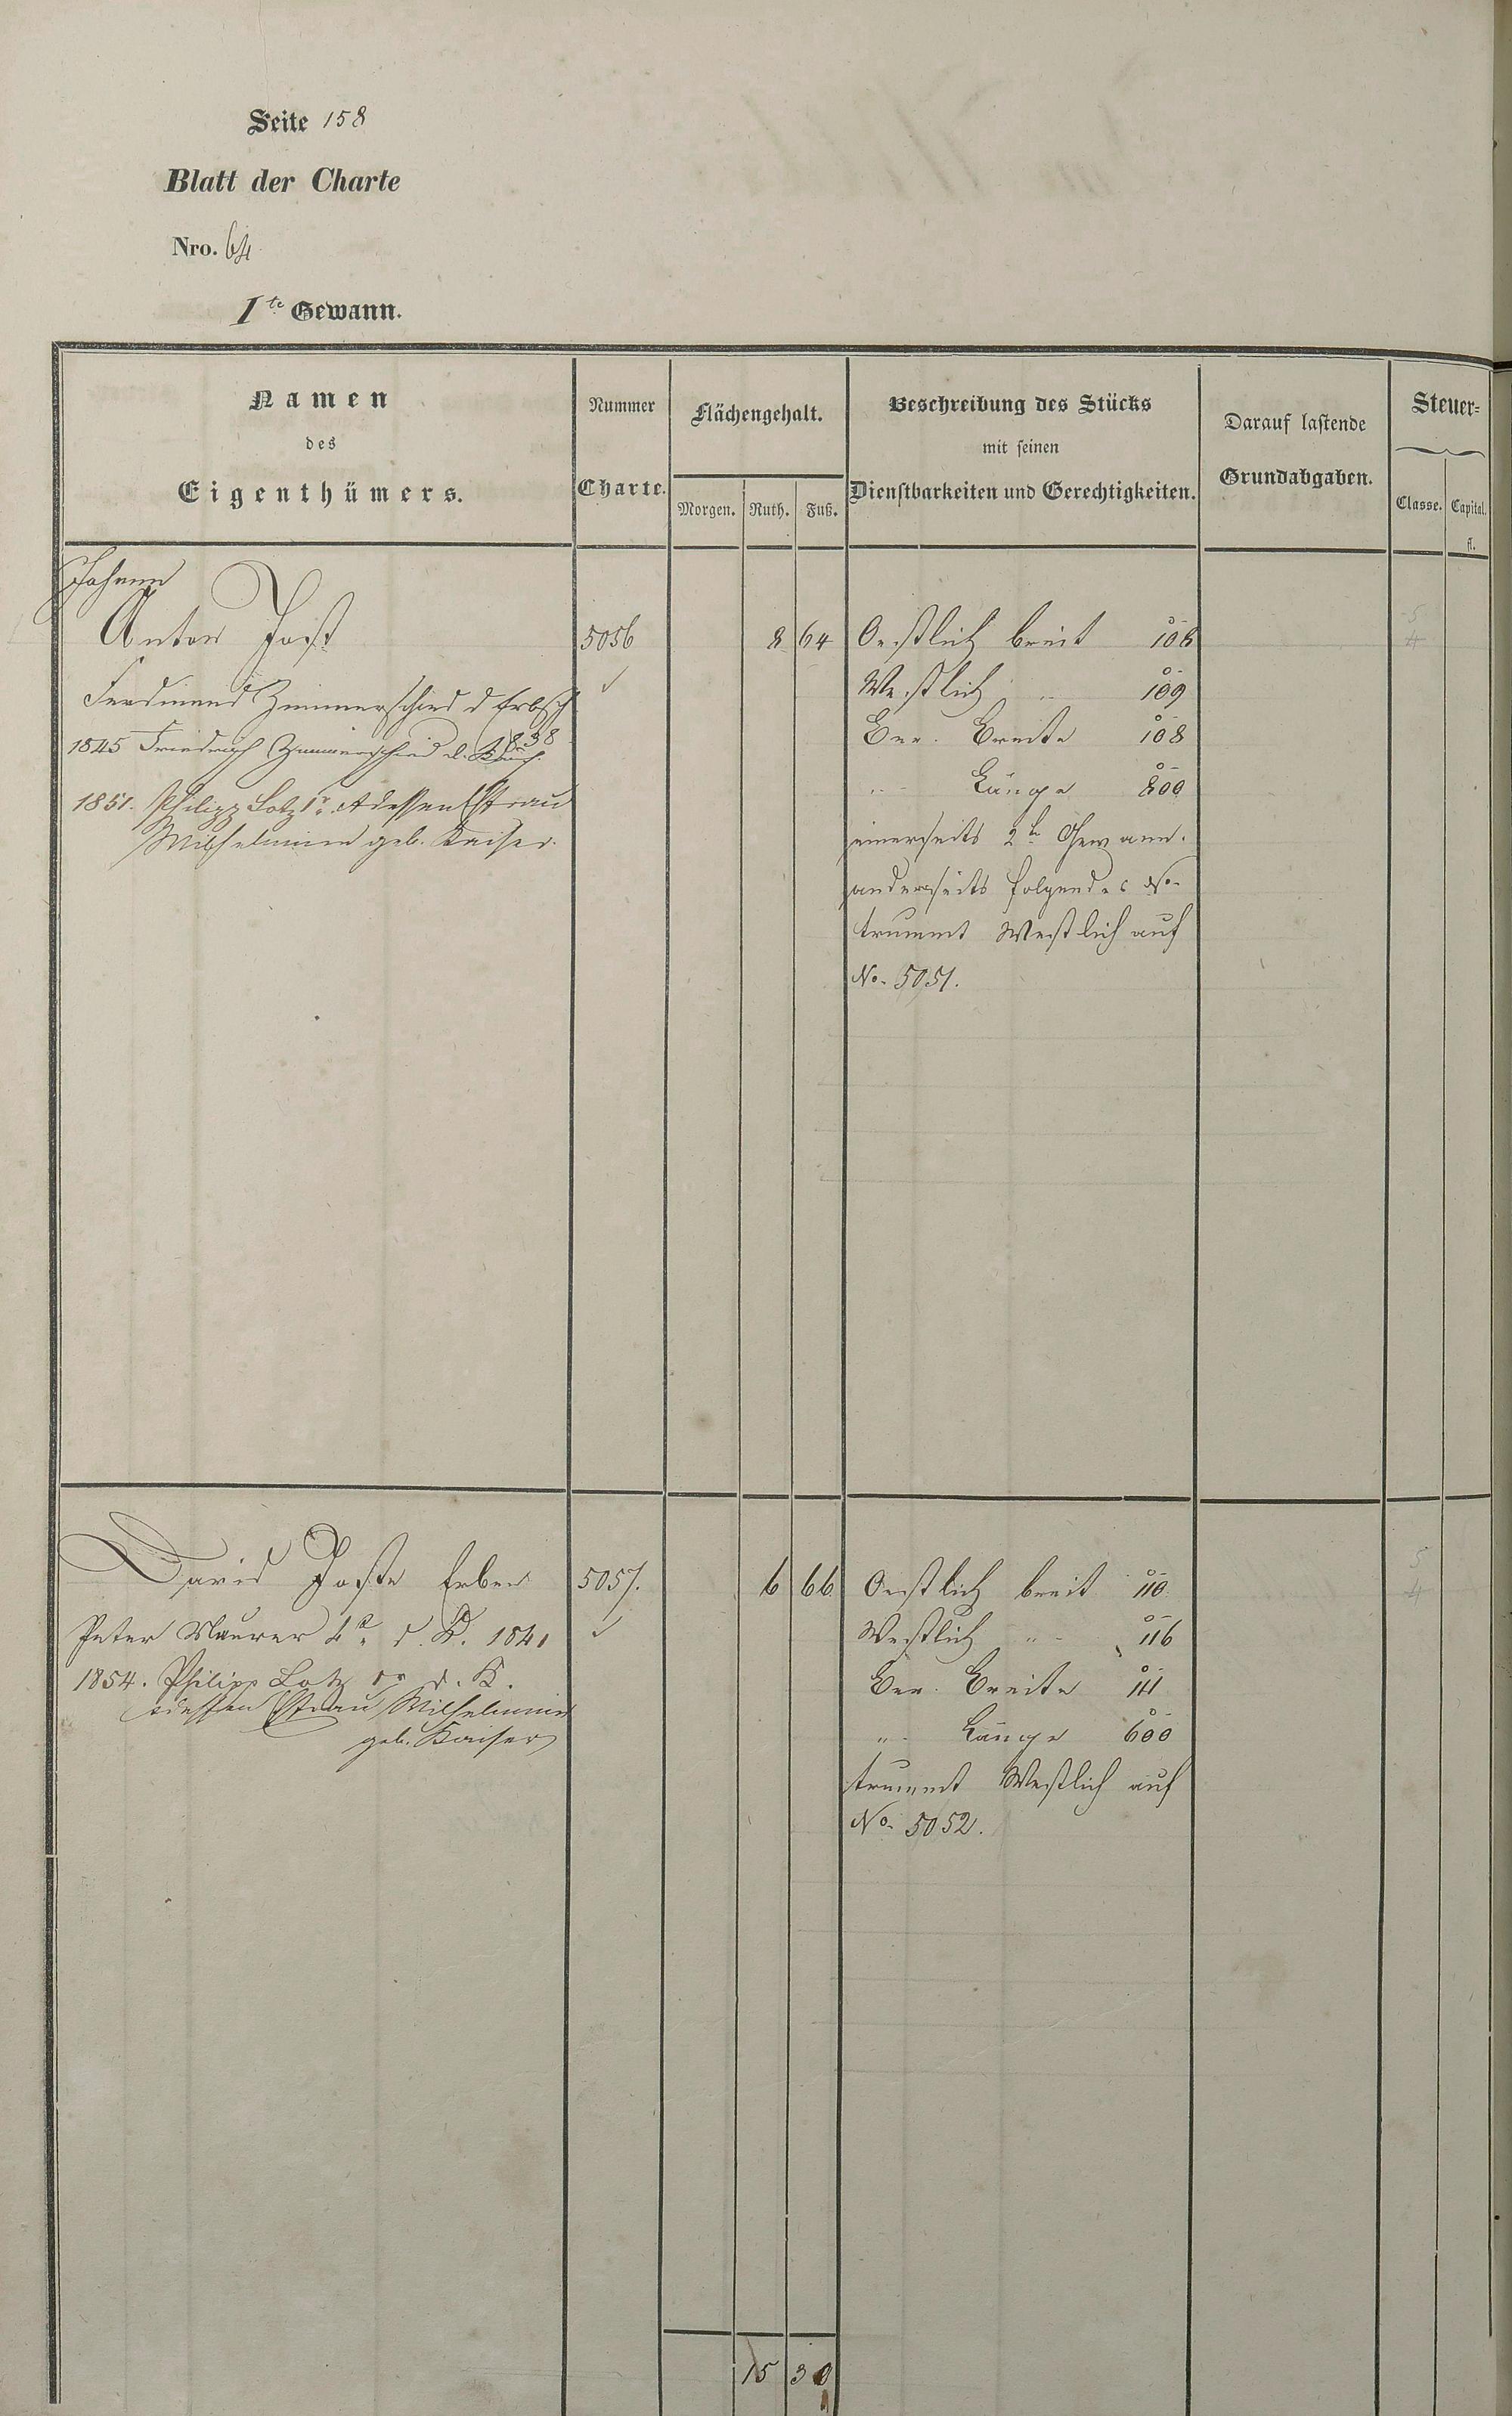 Seite 158
Blatt der Charte
Nro. 64
I te Gewann.
Namen
des
Eigenthümers.
Nummer
Charte.
Flächengehalt.
Morgen. Ruth. Fuß.
Beschreibung des Stücks
mit seinen
Dienstbarkeiten und Gerechtigkeiten.
Darauf lastende
Grundabgaben.
Steuer=
Classe. Capital.
fl.
Johann
Anton Jost
5056
8 64
Oestlich breit 108
Westlich " 109
Ver. Breite 108
" Länge 800
einerseits 2te Gewann.
anderseits folgende No.
trummt Westlich auf
No. 5051.
5
4
Ferdinand Zimmerschied d Erbsch
1838
1845 Friedrich Zimmerschied d. Kauf
1851. Philipp Lotz 1r. dessen Ehfrau
Wilhelmine geb. Kaiser.
David Joste Erben
5057.
6 66
Oestlich breit 110
Westlich " 116
Ver. Breite 111
" Länge 600
trummt Westlich auf
No. 5052.
5
4
Peter Maurer d. K. 1841
1854. Philipp Lotz 1r d. K.
dessen Ehfrau Wilhelmine
geb. Kaiser
15 30